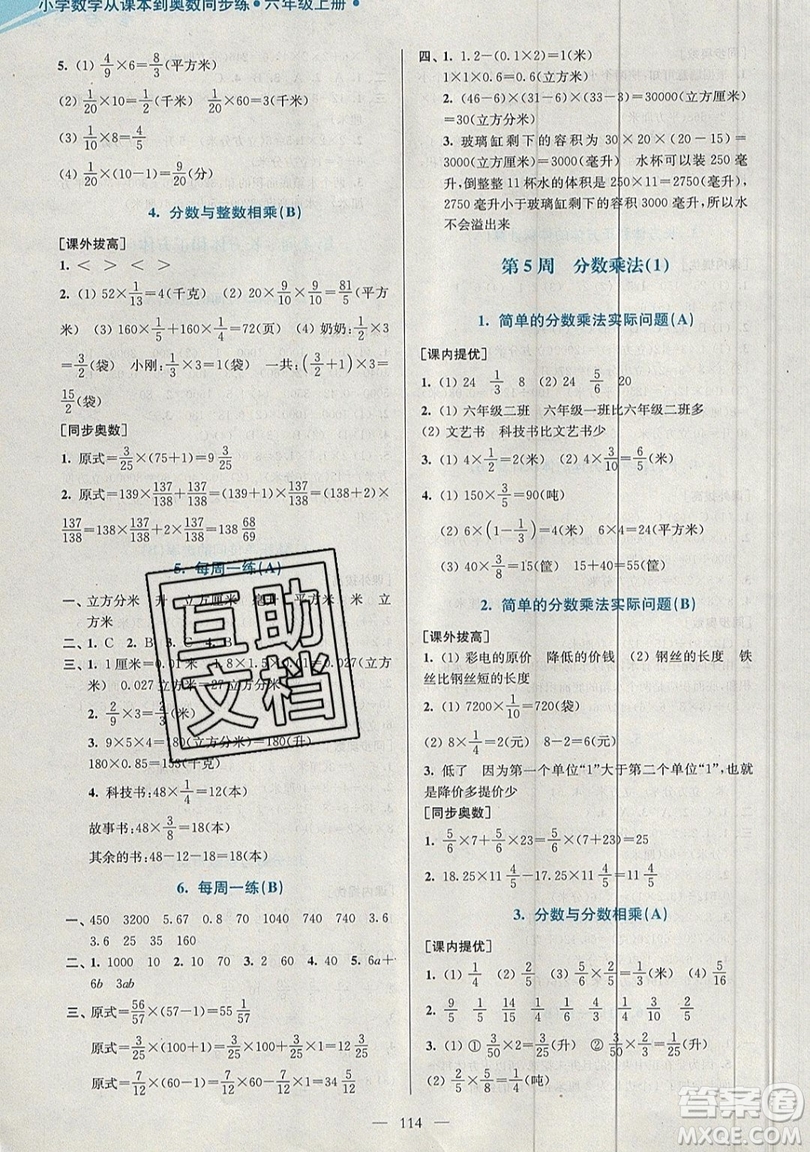 小学数学从课本到奥数同步练•六年级上册•
5. (1) 4/9×6=8/3(平方米)
(2) 1/20×10=1/2(千米) 1/20×60=3(千米)
(3) 1/10×8=4/5
(4) 1/20×(10-1)=9/20(分)
4. 分数与整数相乘(B)
[课外拔高]
1. < > < >
2. (1) 52×1/13=4(千克) (2) 9/10×9/10×10=81/5(平方
米) (3) 160×1/5+160×1/4=72(页) (4) 奶奶:1/2×3
=3/2(袋) 小刚:1/3×3=1(袋) 一共:(3/2+1)×3=
15/2(袋)
[同步奥数]
1. 原式=3/25×(75+1)=9 3/25
2. 原式=139×137/138=(139+1)×137/138=(138+2)×
137/138=138×137/138+2×137/138=138 68/69
5. 每周一练(A)
一、立方分米 升 立方厘米 毫升 平方米 米 立
方米
二、1. C 2. B 3. C 4. B
三、1. 1厘米=0.01米 1.8×1.5×0.01=0.027(立
方米) 0.027立方米=27立方分米
2. 2/9×3=2/3(米)
3. 9×5×4=180(立方分米)=180(升)
180×0.85=153(千克)
4. 科技书:48×1/4=12(本)
故事书:48×3/8=18(本)
其余的书:48-12-18=18(本)
6. 每周一练(B)
一、450 3200 5.67 0.8 70 1040 740 27
3.6 25 35 160
二、1. 1000 10 2. 10 70 3. 2 60 4. 40 5. 6a+
6b 3ab
三、原式=56/57×(57-1)=55 1/57
原式=1/10×(100+1)=1/10×100+1/10×1=10 1/10
原式=6/10×(57+1)=6/10×57+6/10×1=34 5/10
四、1. 1.2-(0.5-0.3)=1(米)
1×1×0.6=0.6(立方米)
2. (46-6)×(31-6)×(33-3)=30000(立方厘米)
=30(立方分米)
3. 玻璃缸剩下的容积为 30×20×(20-15)=
3000(立方厘米)=3000(毫升) 水杯可以装250毫
升,倒整整11杯水的体积是11×250=2750(毫升),
2750毫升小于玻璃缸剩下的容积3000毫升,所以水
不会溢出来
第5周 分数乘法(1)
1. 简单的分数乘法实际问题(A)
[课内提优]
1. (1) 24 1/3 8 (2) 24 5/6 20
2. (1) 六年级二班 六年级一班比六年级二班多
(2) 文艺书 科技书比文艺书少
3. (1) 4×1/2=2(米) (2) 4×3/4=3(米)
4. (1) 150×3/5=90(吨)
(2) 6×(1-1/3)=4(米) 6×4=24(平方米)
(3) 40×3/8=15(筐) 15+40=55(筐)
2. 简单的分数乘法实际问题(B)
[课外拔高]
1. (1) 彩电的原价 降低的价钱 (2) 钢丝的长度 铁
丝比钢丝短的长度
2. (1) 7200×1/10=720(袋)
(2) 8×1/4=2(元) 8-2=6(元)
3. 低了 因为第一个单位“1”大于第二个单位“1”,也就
是降价多提价少
[同步奥数]
1. 5/6×7+5/6×23=5/6×(7+23)=25
2. 18.25×11 4/5-17.25×11 4/5=11 4/5
3. 分数与分数相乘(A)
[课内提优]
1. (1) 1/4 (2) 2/5 3/4 2/5×3/4=3/10
2. 9/5 1/5 14/15 1/4 1/6 1/4 3/10 2/9
3. (1) ① 3/50×2=3/25(升) ② 3/50×2/3=1/25(升)
(2) 2/5×5/8=1/4(吨)
— 114 —
互助
文档
答案圈
MXQE.COM